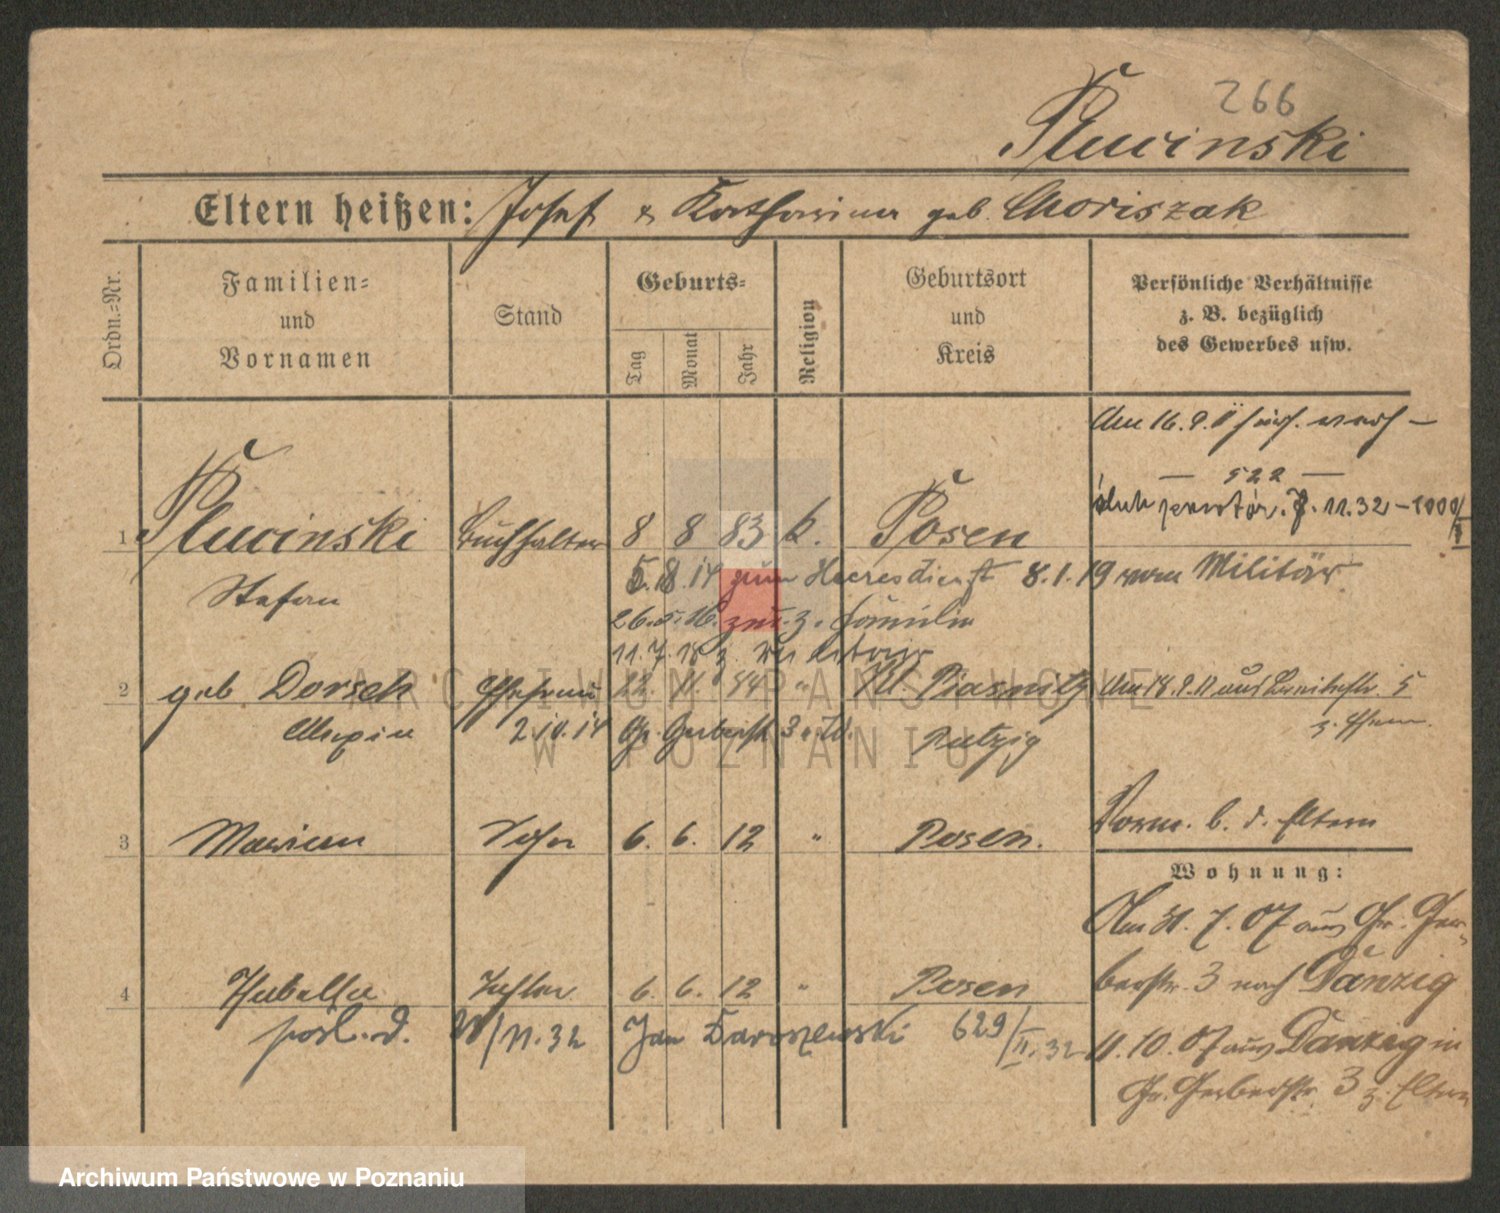 266
Plucinski
Eltern heißen: Josef & Katharina geb. Choriszak
Ordn.=Nr.
Familien=
und
Vornamen
Stand
Geburts=
Tag
Monat
Jahr
Religion
Geburtsort
und
Kreis
Persönliche Verhältnisse
z. B. bezüglich
des Gewerbes usw.
Am 16.9.11
— 522 —
11.32 – 1000/II
1 Plucinski Buchhalter 8 8 83 k. Posen
Stefan
5.8.14 zum Heeresdienst 8.1.19 vom Militär
26.5.16. zur. z. Familie
11.7.18 z.
2 geb. Dorsch Ehefrau 22. 11. 84 " Kl. Piasnitz Am 18.9.11 aus Breitestr. 5
z. Ehem.
2.10.14 Gr. Gerberstr. 3 Putzig
3 Marian Sohn 6. 6. 12 " Posen.
Vorm. b. d. Eltern
Wohnung:
Am 31.7.07 aus Gr. Ger-
berstr. 3 nach Danzig
4 Isabella Tochter 6. 6. 12 " Posen
pośl. d. 20/11.32 Jan Daroszewski 629/II.32
11.10.07 aus Danzig in
Gr. Gerberstr. 3 z. Eltern
ARCHIWUM PAŃSTWOWE
W POZNANIU
Archiwum Państwowe w Poznaniu